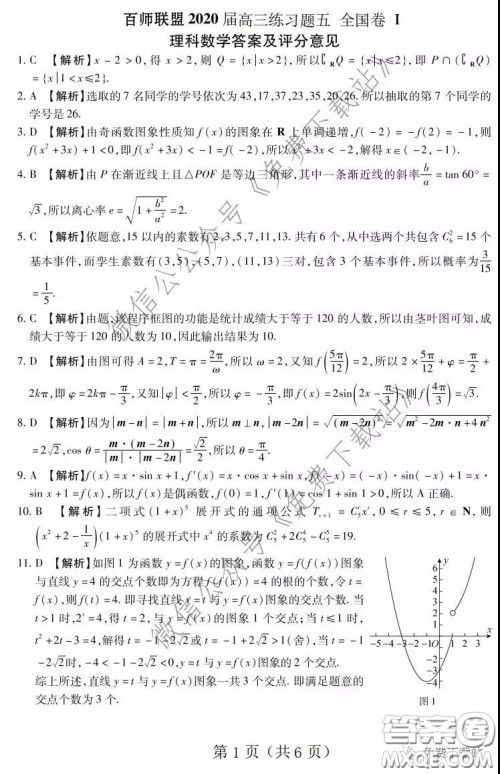 百师联盟 2020 届高三练习题五 全国卷 I
理科数学答案及评分意见
1. C 【解析】x-2>0,得 x>2,则 Q={x|x>2},所以∁RQ={x|x≤2},即 P∩(∁RQ)
={x|1<x≤2}.
2. A 【解析】选取的 7 名同学的学号依次为 43,17,37,23,35,20,26. 所以抽取的第 7 个同学的
学号是 26.
3. D 【解析】由奇函数图象性质知 f(x)的图象在 R 上单调递增,f(-2)=-f(2)=-1,则
f(x²+3x)+1<0,即 f(x²+3x)<-1=f(-2),所以 x²+3x<-2,解得 x∈(-2,-1).
4. B 【解析】由 P 在渐近线上且△POF 是等边三角形,其中一条渐近线的斜率 b/a=tan 60°=
√3,所以离心率 e=√(1+b²/a²)=2.
5. C 【解析】依题意,15 以内的素数有 2,3,5,7,11,13. 共有 6 个,从中选两个共包含 C₆²=15 个
基本事件,而孪生素数有(3,5),(5,7),(11,13)三对,包含 3 个基本事件,所以概率为 3/15
=1/5.
6. C 【解析】由题,该程序框图的功能是统计成绩大于等于 120 的人数,所以由茎叶图可知,成
绩大于等于 120 的人数为 10,因此输出结果为 10.
7. D 【解析】由图可得 A=2,T=π=2π/ω,所以 ω=2,又知 f(5π/12)=2,所以 2×5π/12+φ=π/2+
2kπ,即 φ=2kπ-π/3,又知|φ|<π/2,所以 φ=-π/3,即 f(x)=2sin(2x-π/3),则 f(4π/3)=√3.
8. D 【解析】因为|m-n|=|m+n|,所以 m⊥n,|m-2n|=√(m-2n)²=√(m²-2m·n+4n²)
=2√2,cos θ=m·(m-2n)/(|m|·|m-2n|)=√2/2,所以 θ=π/4.
9. A 【解析】f(x)=x·sin x+1,f′(x)=x·cos x+sin x,f(-x)=(-x)·sin(-x)+1=x·
sin x+1=f(x),所以 f(x)是偶函数,f(0)=1,f′(1)=cos 1+sin 1>0,所以 A 正确.
10. B 【解析】二项式(1+x)⁵ 展开式的通项公式 Tr+1=C₅ʳxʳ,0≤r≤5,r∈N,则
(x²+2-1/x)(1+x)⁵ 的展开式中 x⁴ 的系数为 C₅²+2C₅⁴-C₅⁵=19.
11. D 【解析】如图 1 为函数 y=f(x)的图象,函数 y=f(f(x))图象
与直线 y=4 的交点个数即为方程 f(f(x))=4 的根的个数,令 t=
f(x),则 f(t)=4. 即寻找直线 y=t 与 y=f(x)图象的交点个数. 当
t>1 时,2ᵗ=4,得 t=2,y=t 与 y=f(x)图象 1 个交点;当 t≤1 时,
t²+2t-3=4,解得 t=-1-2√2或 t=-1+2√2>1(舍),当 t=-1
-2√2时,-4<-1-2√2<0,可得 y=t 与 y=f(x)图象的 2 个交点.
综上所述,直线 y=t 与 y=f(x)图象一共 3 个交点. 即满足题意的
交点个数为 3 个.
y
6
5
4
3
2
1
O 1 2 3 x
图 1
第 1 页（共 6 页）
微信公众号《免费下载站》
微信公众号《免费下载站》
答案圈